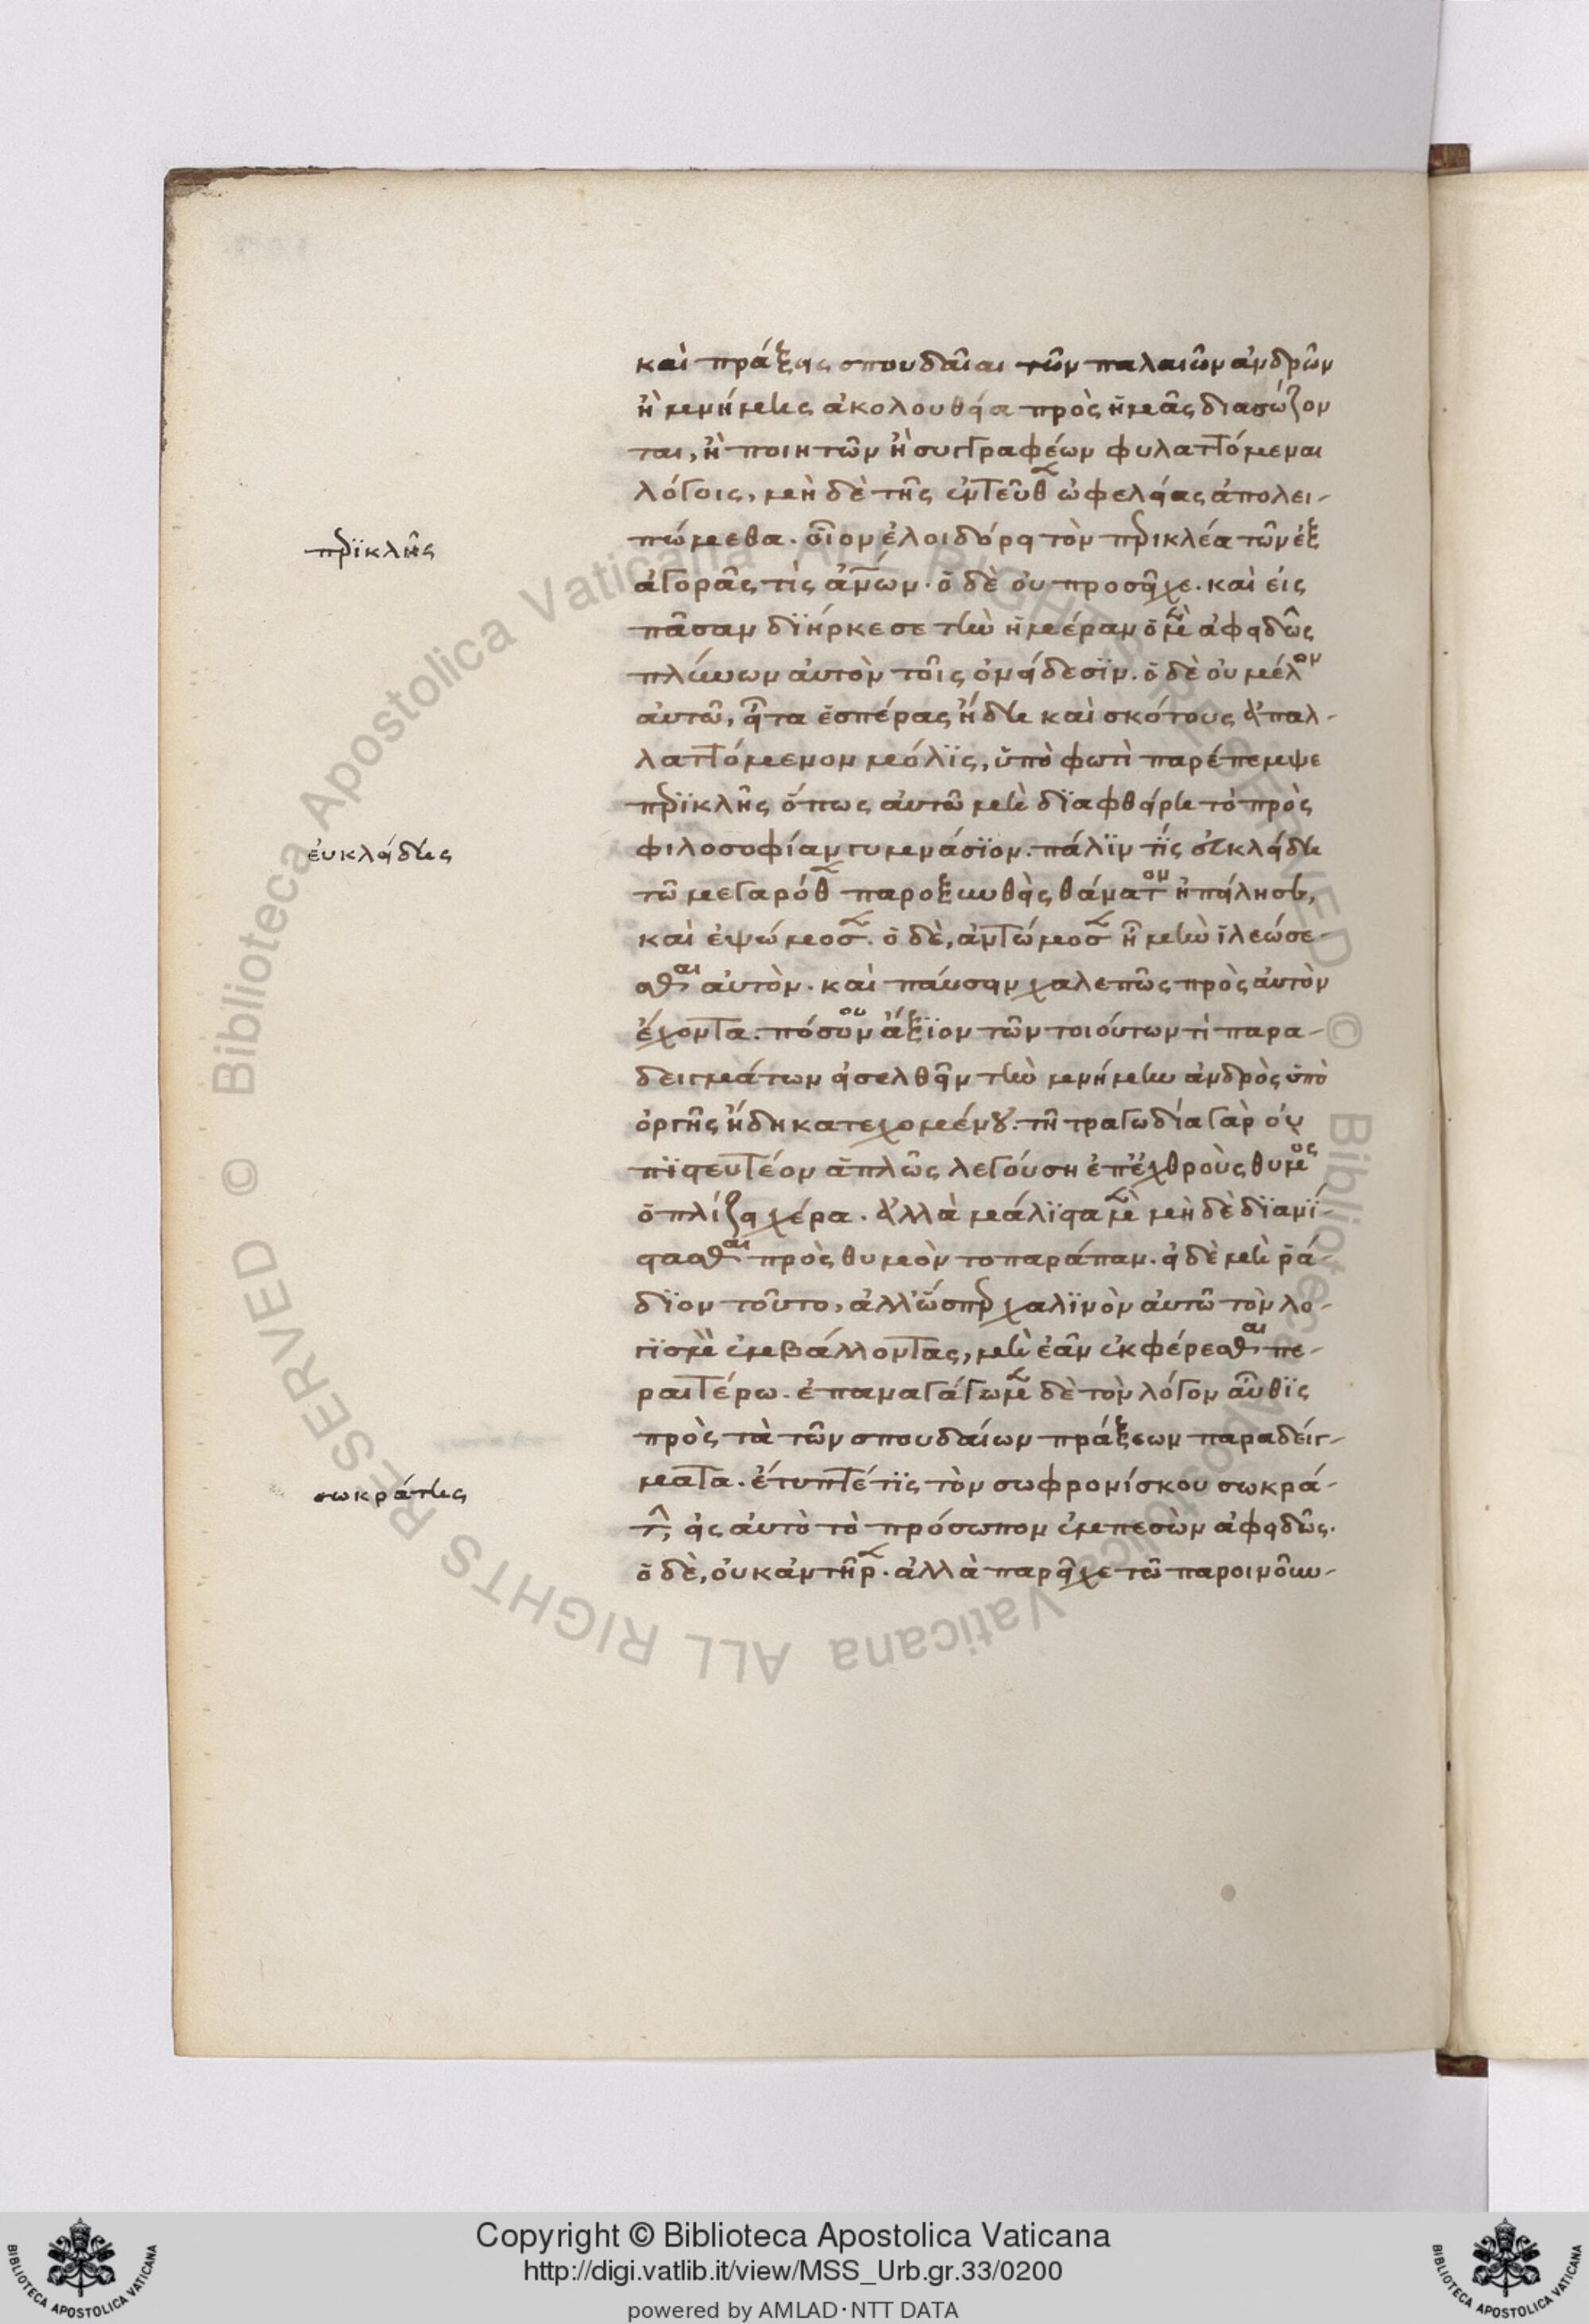 καὶ πράξεις σπουδαῖαι τῶν παλαιῶν ἀνδρῶν
ἢ μνήμης ἀκολουθεία πρὸς ἡμᾶς διασώζον
ται, ἢ ποιητῶν ἢ συγγραφέων φυλαττόμεναι
λόγοις, μὴ δὲ τῆς ἐντεῦθ ὠφελείας ἀπολει-
πώμεθα. οἷον ἐλοιδόρει τὸν περικλέα τῶν ἐξ
περϊκλῆς
ἀγορᾶς τὶς ἀνων. ὁ δὲ οὐ προσεῖχε. καὶ εἰς
πᾶσαν διήρκεσε τὴν ἡμέραν ὁ μὲν ἀφειδῶς
πλύνων αὐτὸν τοῖς ὀνείδεσϊν. ὁ δὲ οὐ μέλον
αὐτῶ, εἶτα ἑσπέρας ἤδη καὶ σκότους ἀπαλ-
λαττόμενον μόλϊς, ὑπὸ φωτὶ παρέπεμψε
περϊκλῆς ὅπως αὐτῶ μὴ δϊαφθείρη τὸ πρὸς
φιλοσοφίαν γυμνάσϊον. πάλϊν τίς εὐκλείδη
εὐκλείδης
τῶ μεγαρόθ παροξυνθεὶς θάνατον ἠπείλησε,
καὶ ἐπώμοσ. ὁ δὲ, ἀντώμοσ ἦ μὴν ἱλεώσε-
σθαι αὐτὸν. καὶ παύσειν χαλεπῶς πρὸς αὐτὸν
ἔχοντα. πόσου οὖν ἄξϊον τῶν τοιούτων τὶ παρα-
δειγμάτων εἰσελθεῖν τὴν μνήμην ἀνδρὸς ὑπὸ
ὀργῆς ἤδη κατεχομένου. τῆ τραγωδία γὰρ οὐ
πϊστευτέον ἁπλῶς λεγούση ἐπ' ἐχθροὺς θυμος
ὁπλίζει χεῖρα. ἀλλὰ μάλϊστα μὲν μὴ δὲ δϊανί-
στασθαι πρὸς θυμὸν τοπαράπαν. εἰ δὲ μὴ ῥά
δϊον τοῦτο, ἀλλ' ὥσπερ χαλϊνὸν αὐτῶ τὸν λο-
γϊσμὸν ἐμβάλλοντας, μὴ ἐᾶν ἐκφέρεσθαι πε-
ραιτέρω. ἐπαναγάγωμεν δὲ τὸν λόγον αὖθϊς
πρὸς τὰ τῶν σπουδαίων πράξεων παραδείγ-
ματα. ἔτυπτέ τϊς τὸν σωφρονίσκου σωκρά-
σωκράτης
τ, εἰς αὐτὸ τὸ πρόσωπον ἐμπεσὼν ἀφειδῶς.
ὁ δὲ, οὐκ ἀντῆρ. ἀλλὰ παρεῖχε τῶ παροινοῦν-
Copyright © Biblioteca Apostolica Vaticana
http://digi.vatlib.it/view/MSS_Urb.gr.33/0200
powered by AMLAD·NTT DATA